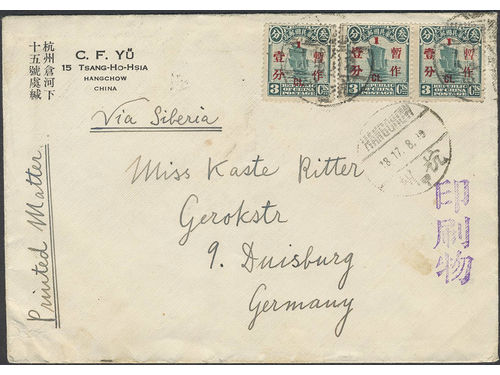 杭州倉河下
十五號虞緘
C. F. YÜ
15 TSANG-HO-HSIA
HANGCHOW
CHINA
Via Siberia
Printed Matter.
Miss Kaste Ritter
Gerokstr
9. Duisburg
Germany
印刷物
暫作
1
壹分
CT.
3
暫作
1
壹分
3
暫作
1
壹分
CT.
3
HANGCHOW
18.17.8.19
杭